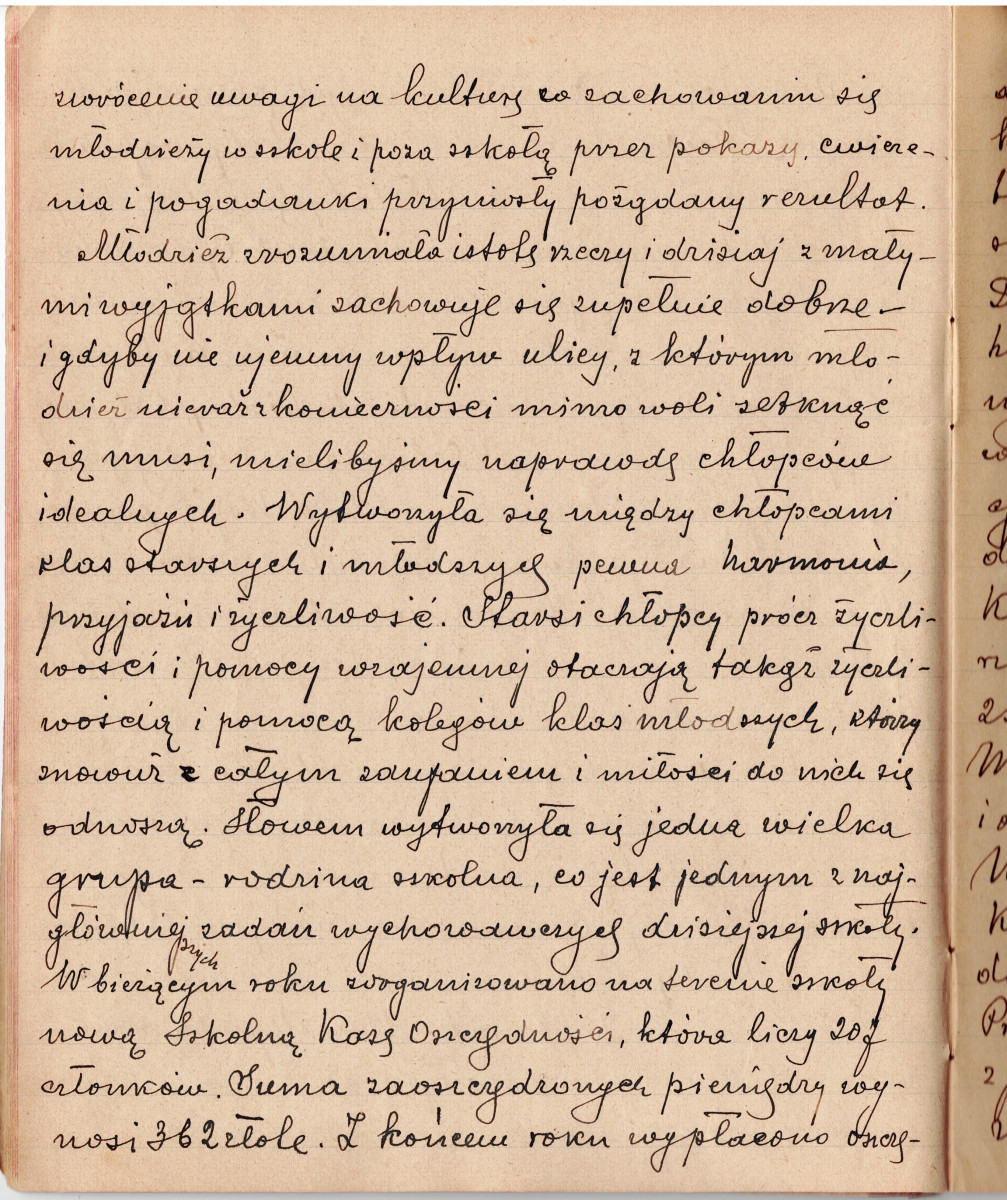 zwrócenie uwagi na kulturę w zachowaniu się
młodzieży w szkole i poza szkołą przez pokazy, ćwicze-
nia i pogadanki przyniosły pożądany rezultat.
Młodzież zrozumiała istotę rzeczy i dzisiaj z mały-
mi wyjątkami zachowuje się zupełnie dobrze –
i gdyby nie ujemny wpływ ulicy, z którym mło-
dzież nieraz z konieczności mimo woli zetknąć
się musi, mielibyśmy naprawdę chłopców
idealnych. Wytworzyła się między chłopcami
klas starszych i młodszych pewna harmonia,
przyjaźń i życzliwość. Starsi chłopcy prócz życzli-
wości i pomocy wzajemnej otaczają takąż życzli-
wością i pomocą kolegów klas młodszych, którzy
znowuż z całym zaufaniem i miłości do nich się
odnoszą. Słowem wytworzyła się jedna wielka
grupa – rodzina szkolna, co jest jednym z naj-
główniejszych zadań wychowawczych dzisiejszej szkoły.
W bieżącym roku zorganizowano na terenie szkoły
nową Szkolną Kasę Oszczędności, która liczy 207
członków. Suma zaoszczędzonych pieniędzy wy-
nosi 362 złote. Z końcem roku wypłacono oszczę-